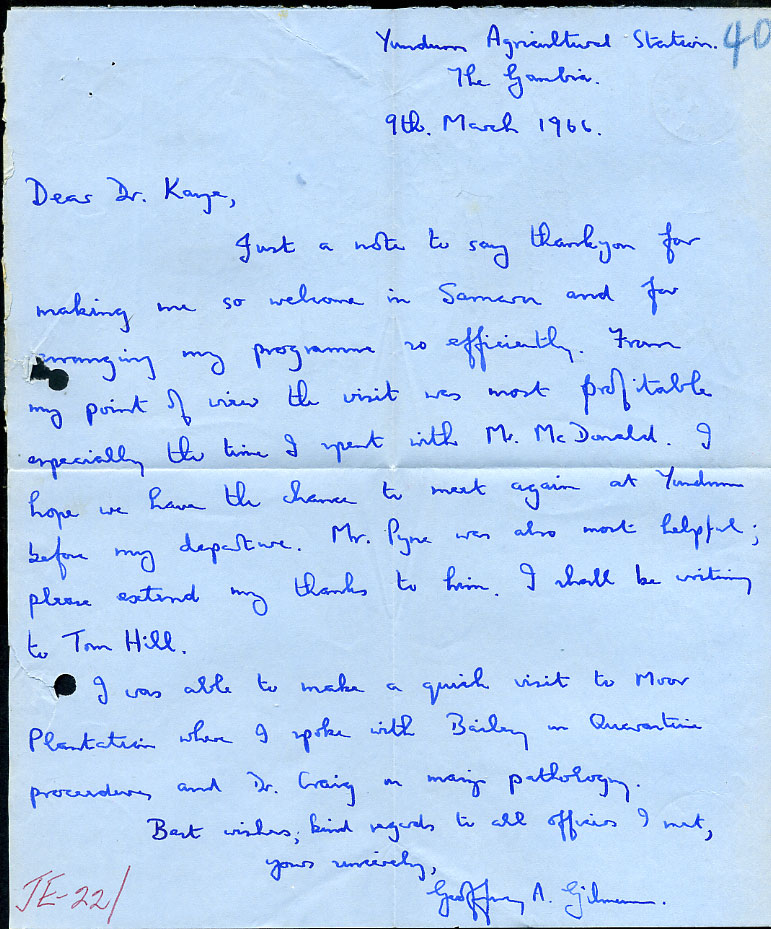 40
Yundum Agricultural Station.
The Gambia.
9th. March 1966.
Dear Dr. Kaye,
Just a note to say thankyou for
making me so welcome in Samaru and for
arranging my programme so efficiently. From
my point of view the visit was most profitable
especially the time I spent with Mr. McDonald. I
hope we have the chance to meet again at Yundum
before my departure. Mr. Pyne was also most helpful;
please extend my thanks to him. I shall be writing
to Tom Hill.
I was able to make a quick visit to Moor
Plantation where I spoke with Bailey on Quarantine
procedures, and Dr. Craig on maize pathology.
Best wishes, kind regards to all officers I met,
yours sincerely,
Geoffrey A. Gilman.
JE-22/